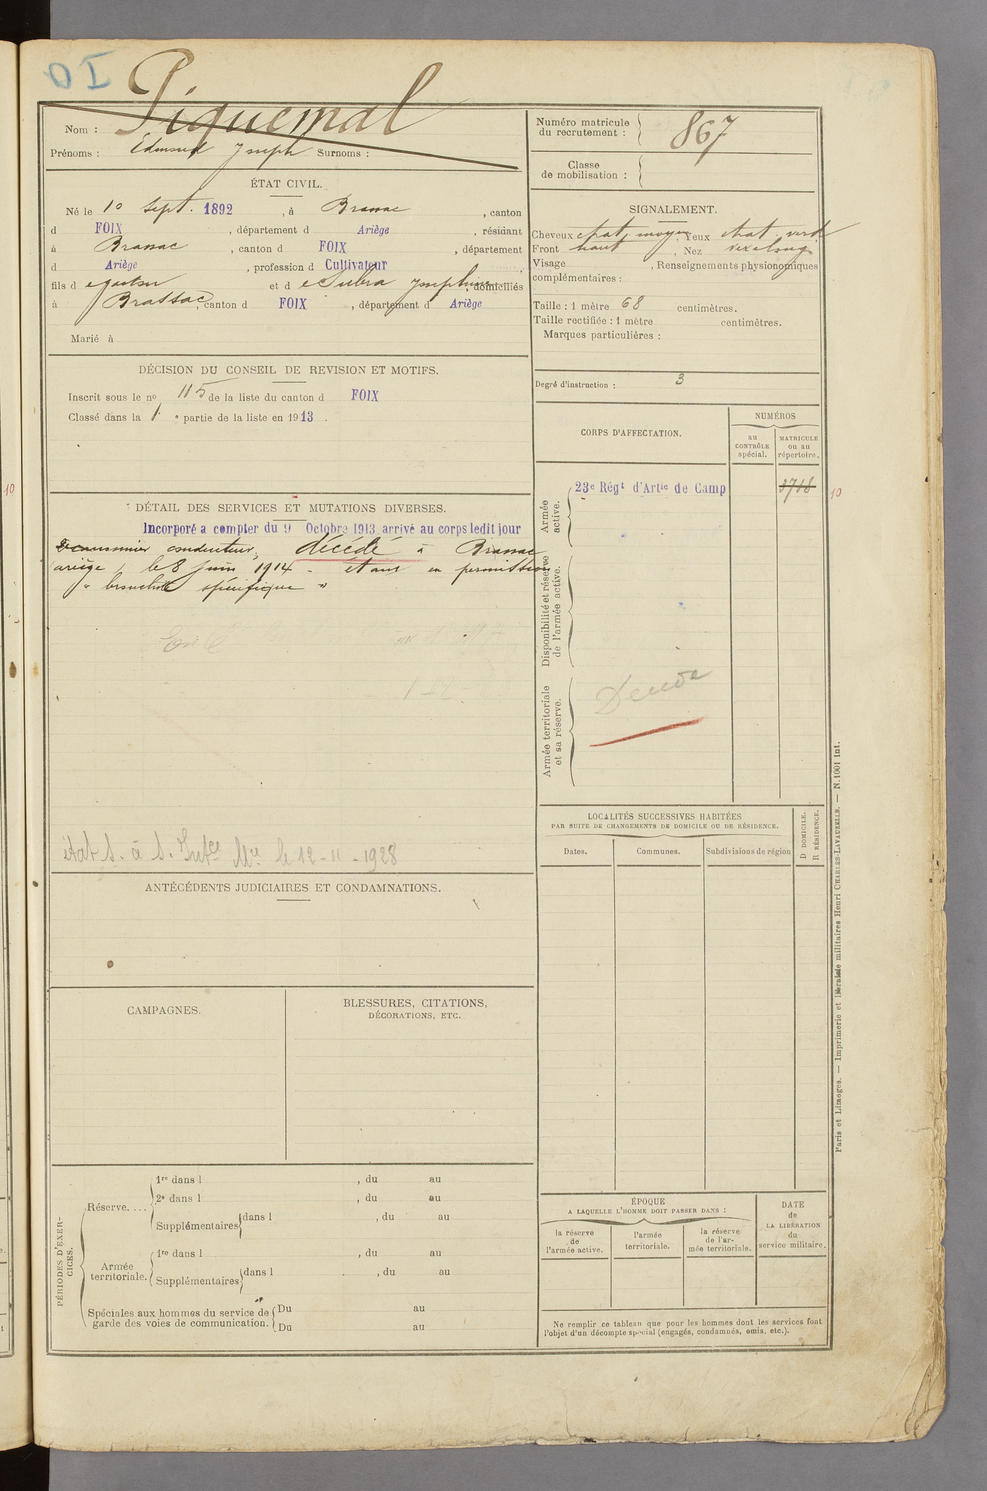 OI
Nom : Piquemal
Prénoms : Edmond Joseph Surnoms :
Numéro matricule
du recrutement : 867
Classe
de mobilisation :
ÉTAT CIVIL.
Né le 10 Sept. 1892, à Brassac, canton
d FOIX, département d Ariège, résidant
à Brassac, canton d FOIX, département
d Ariège, profession d Cultivateur
fils d et d Subra Josephine, domiciliés
à Brassac, canton d FOIX, département d Ariège
Marié à
SIGNALEMENT.
Cheveux chat. moyen, Yeux chat. verd
Front haut, Nez
Visage , Renseignements physionomiques
complémentaires :
Taille : 1 mètre 68 centimètres.
Taille rectifiée : 1 mètre centimètres.
Marques particulières :
Degré d'instruction : 3
DÉCISION DU CONSEIL DE REVISION ET MOTIFS.
Inscrit sous le no 115 de la liste du canton d FOIX
Classé dans la 1 e partie de la liste en 1913.
CORPS D'AFFECTATION.
NUMÉROS
au
CONTRÔLE
spécial.
MATRICULE
ou au
répertoire.
23e Régt d'Artie de Camp
3718
10
10
Armée
active.
Disponibilité et réserve
de l'armée active.
Armée territoriale
et sa réserve.
DÉTAIL DES SERVICES ET MUTATIONS DIVERSES.
Incorporé à compter du 9 Octobre 1913 arrivé au corps ledit jour
2e canonnier conducteur, décédé à Brassac
ariège, le 8 juin 1914 - étant en permission
" bronchite spécifique "
le 12-11-1928
LOCALITÉS SUCCESSIVES HABITÉES
PAR SUITE DE CHANGEMENTS DE DOMICILE OU DE RÉSIDENCE.
Dates.
Communes.
Subdivisions de région
D DOMICILE.
R RÉSIDENCE.
ANTÉCÉDENTS JUDICIAIRES ET CONDAMNATIONS.
CAMPAGNES.
BLESSURES, CITATIONS,
DÉCORATIONS, ETC.
PÉRIODES D'EXER-
CICES.
Réserve....
1re dans l , du au
2e dans l , du au
Supplémentaires dans l , du au
Armée
territoriale.
1re dans l , du au
Supplémentaires dans l , du au
Spéciales aux hommes du service de
garde des voies de communication.
Du au
Du au
ÉPOQUE
A LAQUELLE L'HOMME DOIT PASSER DANS :
la réserve
de
l'armée active.
l'armée
territoriale.
la réserve
de l'ar-
mée territoriale.
DATE
de
LA LIBÉRATION
du
service militaire.
Ne remplir ce tableau que pour les hommes dont les services font
l'objet d'un décompte spécial (engagés, condamnés, omis, etc.).
Paris et Limoges. — Imprimerie et librairie militaires Henri CHARLES-LAVAUZELLE. — N.1001 Int.